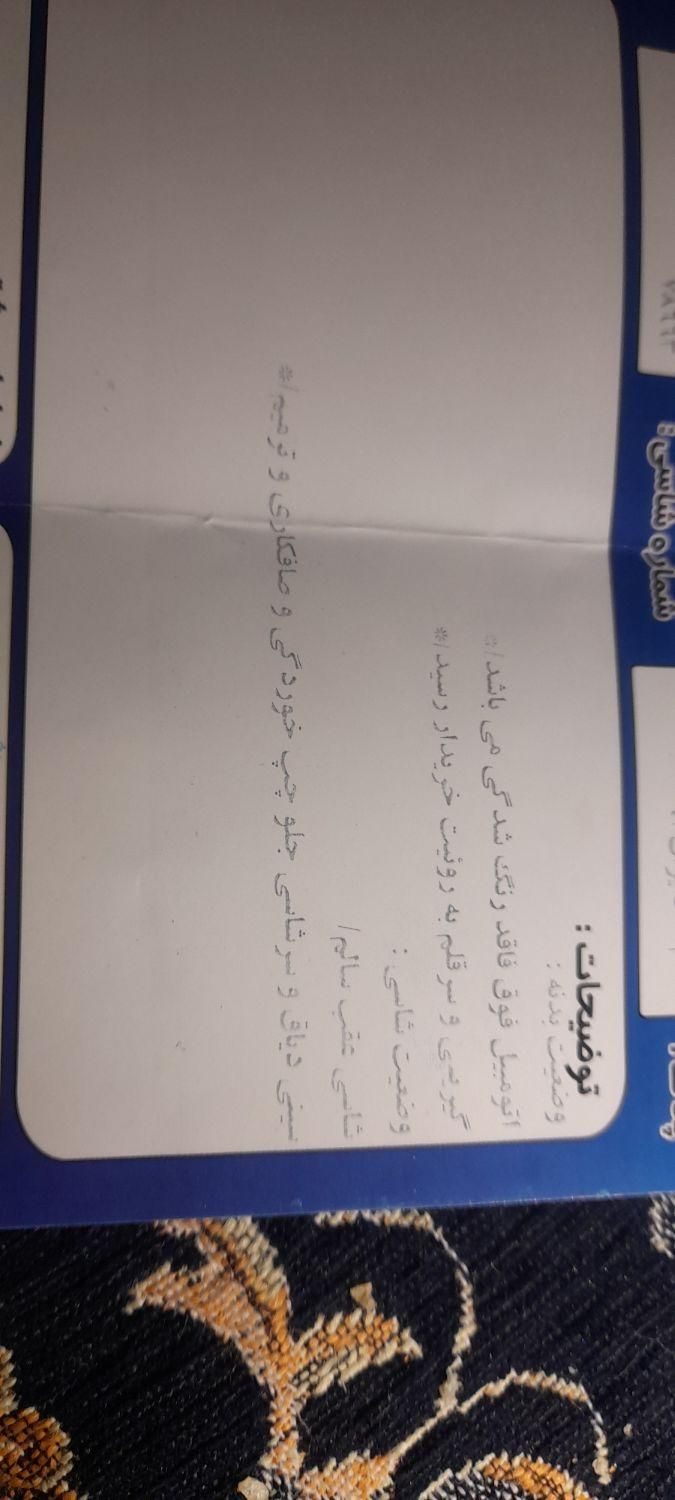 شماره شاسی :
توضیحات :
وضعیت بدنه :
اتومبیل فوق فاقد رنگ شدگی می باشد/*
گیربی و سرقلم به روئیت خریدار رسید/*
وضعیت شاسی :
شاسی عقب سالم/
سینی دیاق و سرشاسی جلو چپ خوردگی و صافکاری و ترمیم/*